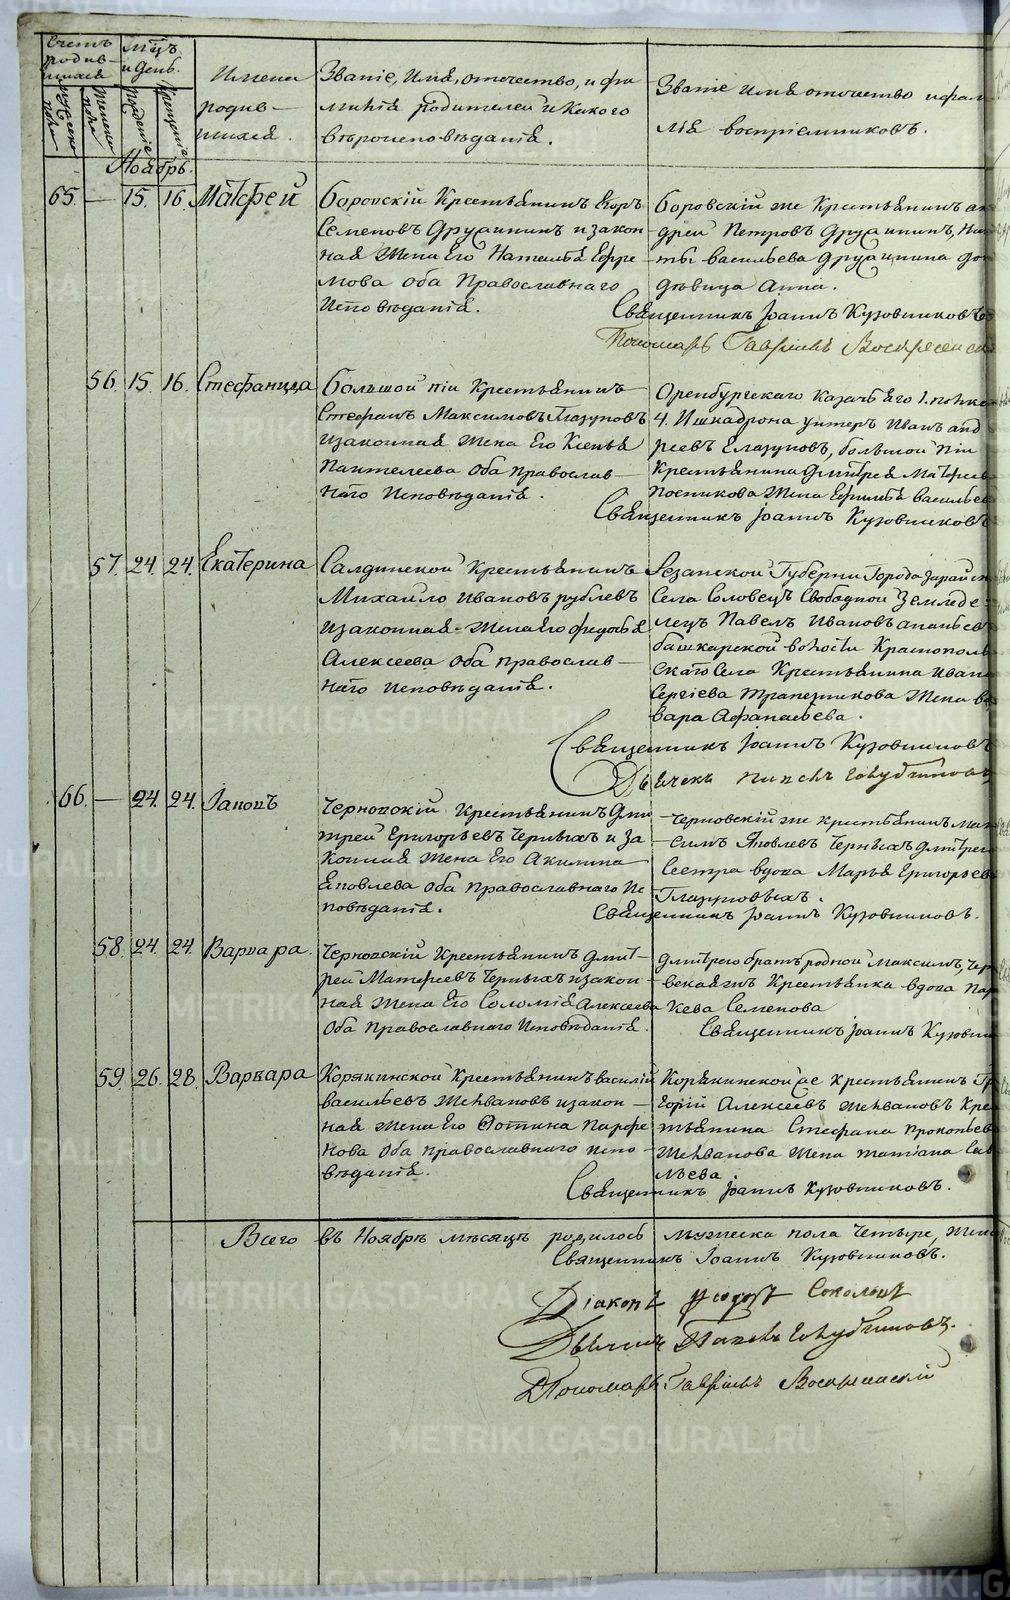 METRIKI.GASO-URAL.RU
Счетъ родив-шихся
Мцъ и день.
Имена родив-шихся.
Званіе, Имя, отчество, и фа-
милія родителей и какого
вѣроисповѣданія.
Званіе имя отчество и фами
лія воспріемниковъ.
мужеска пола
женска пола
рожденіе
крещеніе
Ноябрь.
65. — 15. 16. Матфей
Боровскій Крестьянинъ Егоръ
Семеновъ Друганинъ и закон-
ная жена его Наталья Ефре-
мова оба Православнаго
Исповѣданія.
Боровскій же Крестьянинъ ан
дрей Петровъ Друганинъ, Ники
ты васильева Друганина до
дѣвица Анна.
Священникъ Іоаннъ Кузовниковъ
Пономарь Гавріилъ Воскресенск
56. 15. 16. Стефанида
Большой піи Крестьянинъ
Стефанъ Максимовъ Глазуновъ
и законная жена Его Ксенья
Пантелеева оба православ-
наго исповѣданія.
Оренбургскаго казачьяго 1. полка
4. Ишкадрона унтеръ Иванъ анд
реевъ Глазуновъ, большой піи
Крестьянина Дмитрея Матфеев
Посникова жена Ефимья васильев
Священникъ Іоаннъ Кузовниковъ
57. 24. 24. Екатерина
Салдинской Крестьянинъ
Михайло Ивановъ рублевъ
и законная жена Его Федосья
Алексеева оба православ-
наго исповѣданія.
Резанской Губерни Города Зарайск
Села Словецъ Свободной Землede-
лецъ Павелъ Ивановъ ананьев
башкарской волости Краснополь
скаго Села Крестьянина Ивана
Сергіева Трапезникова жена ва
вара Афанасьева.
Священникъ Іоаннъ Кузовниковъ
66. — 24. 24. Іаковъ
Черновскій Крестьянинъ Дми
трей Григорьевъ Черныхъ и за
конная жена Его Акилина
Яковлева оба православнаго Ис
повѣданія.
Черновскій же крестьянинъ Мак
симъ Яковлевъ Черныхъ Дмитрея
Сестра вдова Марья Григорьев
Глазуновыхъ.
Священникъ Іоаннъ Кузовниковъ.
58. 24. 24. Варвара.
Черновскій Крестьянинъ Дмит-
рей Матфеевъ Черныхъ и закон-
ная жена Его Соломія Алексеева
Оба Православнаго Исповѣданія.
Дмитрею братъ родной Максимъ, Черн
вская жъ Крестьянка вдова Пар
Кева Семенова
Священникъ Іоаннъ Кузовни
59. 26. 28. Варвара
Корякинской Крестьянинъ василій
васильевъ Желвановъ и закон-
ная жена Его Фотина Парфе
нова оба православнаго испо-
вѣданія.
Корякинской же крестьянинъ Гр
Егорій Алексеевъ Желвановъ Кре
тьянина Стефана Прокопьев
Желванова жена татіана Сав
льева.
Священникъ Іоаннъ Кузовниковъ.
Всего въ Ноябрѣ мѣсяцѣ родилось мужеска пола четыре, женс
Священникъ Іоаннъ Кузовниковъ.
Діаконъ Федотъ Соколовъ
Дьячекъ Голубчиковъ.
Пономарь Гавріилъ Воскресенскій